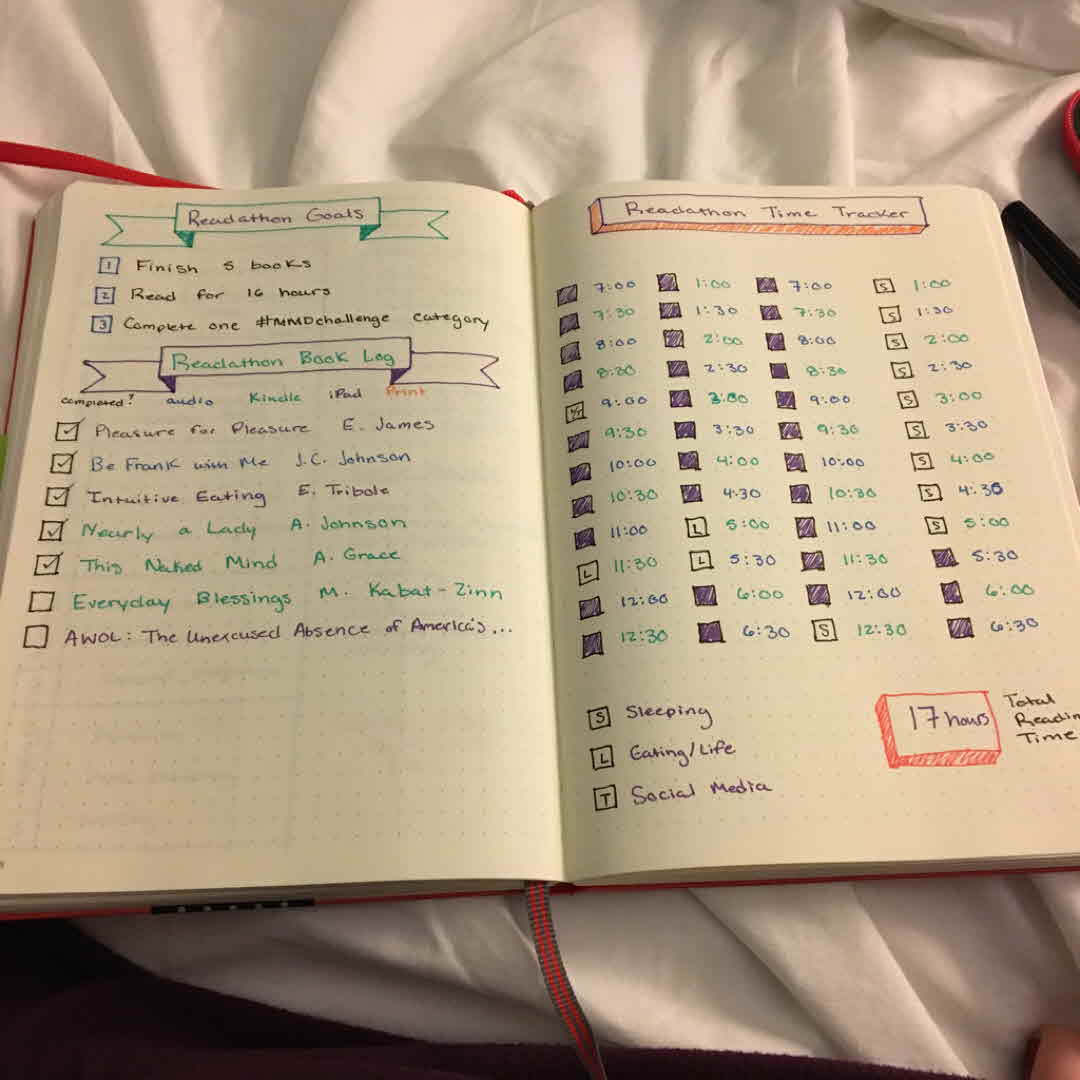 Readathon Goals
1 Finish 5 books
2 Read for 16 hours
3 Complete one #MMDchallenge category
Readathon Book Log
completed? audio Kindle iPad Print
Pleasure for Pleasure E. James
Be Frank with Me J.C. Johnson
Intuitive Eating E. Tribole
Nearly a Lady A. Johnson
This Naked Mind A. Grace
Everyday Blessings M. Kabat-Zinn
AWOL: The Unexcused Absence of America's...
Readathon Time Tracker
7:00 1:00 7:00 S 1:00
7:30 1:30 7:30 S 1:30
8:00 2:00 8:00 S 2:00
8:30 2:30 8:30 S 2:30
9:00 3:00 9:00 S 3:00
9:30 3:30 9:30 S 3:30
10:00 4:00 10:00 S 4:00
10:30 4:30 10:30 S 4:30
11:00 L 5:00 11:00 S 5:00
L 11:30 L 5:30 11:30 5:30
12:00 6:00 12:00 6:00
12:30 6:30 S 12:30 6:30
S Sleeping
L Eating/Life
T Social Media
17 hours
Total
Readin
Time